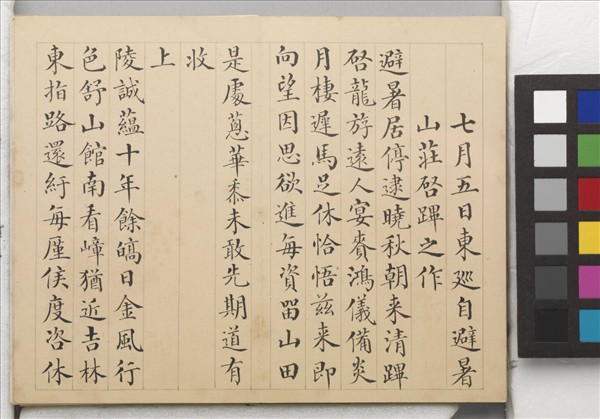 七月五日東廵自避暑
山莊啓蹕之作
避暑居停逮曉秋朝来清蹕
啓龍斿遠人宴賚鴻儀備炎
月棲遲馬足休恰悟兹来即
向望因思欲進每資畱山田
是處蔥華黍未敢先期道有
收
上
陵誠蘊十年餘皜日金風行
色舒山館南看嶂猶近吉林
東指路還紆每廑俟度咨休